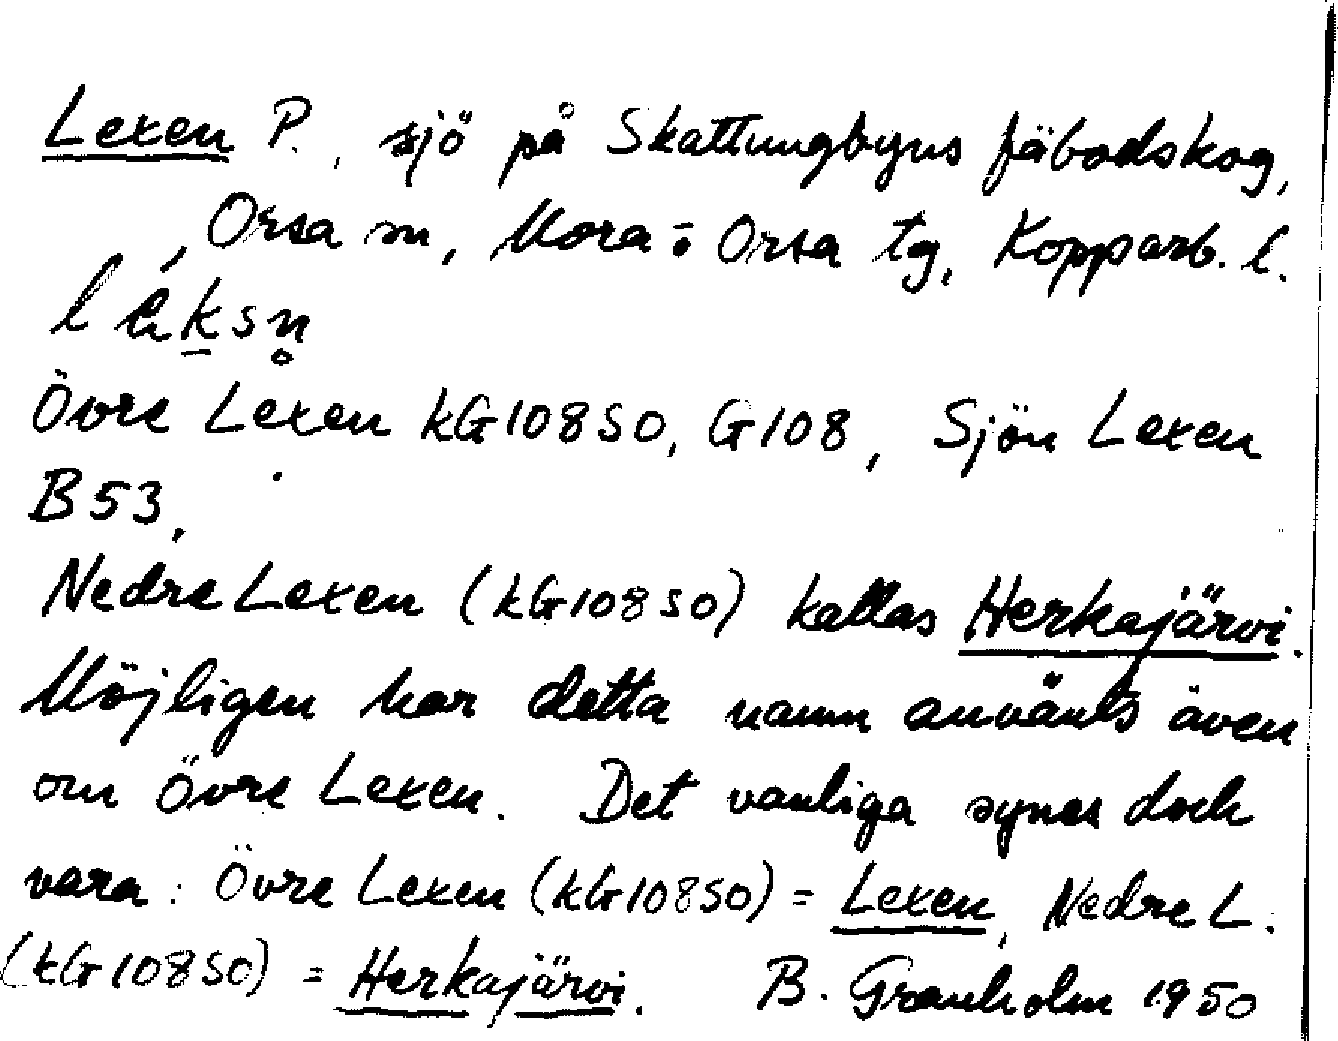 Lexen P., sjö på Skattungbyns fäbodskog,
Orsa sn, Mora o. Orsa tg, Kopparb. l.
Övre Lexen kG108SO, G108, Sjön Lexen
B53,
Nedre Lexen (kG108SO) kallas Herkajärvi.
Möjligen har detta namn använts även
om Övre Lexen. Det vanliga synes dock
vara: Övre Lexen (kG108SO) = Lexen, Nedre L.
(kG108SO) = Herkajärvi. B. Granholm 1950